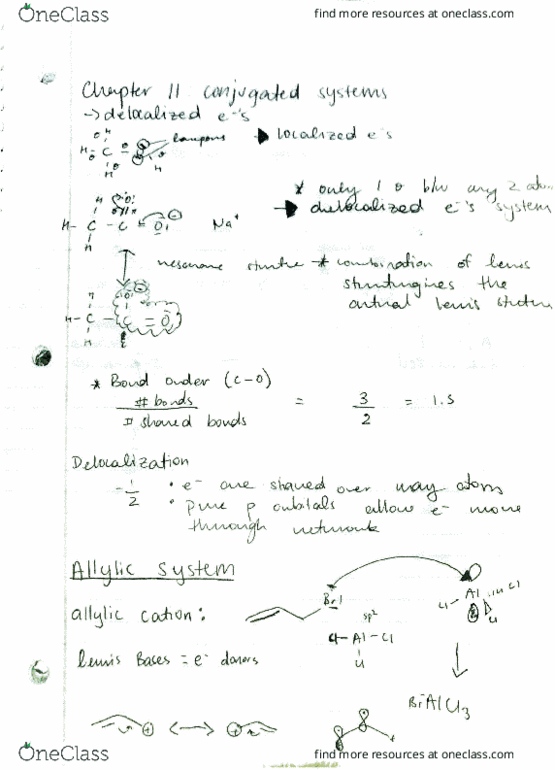 OneClass
find more resources at oneclass.com
Chapter 11 conjugated systems
→ delocalized e⁻'s
lonepairs → localized e⁻s
* only 1 σ b/w any 2 atom
→ delocalized e⁻s system
Na⁺
resonance * combination of lewis
the
actual lewis
* Bond order (C-O)
# bonds = 3 = 1.5
# shared bonds 2
Delocalization
-1/2 • e⁻ are shared over many atoms
• pure p orbitals allow e⁻ move
through network
Allylic System
allylic cation:
Br
sp²
Cl-Al-Cl
Cl
Cl- Al Cl
Cl
Lewis Bases = e⁻ donors
BrAlCl₃
OneClass
find more resources at oneclass.com